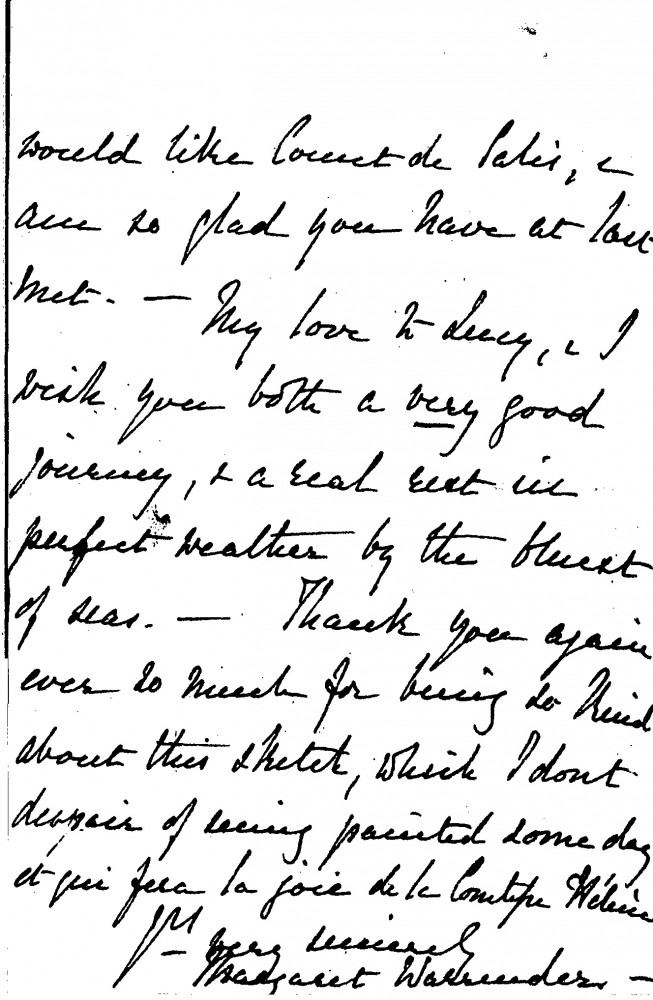 would like Count de Salis, &
am so glad you have at last
met. — My love to Lucy, & I
wish you both a very good
journey, & a real rest in
perfect weather by the bluest
of seas. — Thank you again
ever so much for being so kind
about this sketch, which I dont
despair of seeing painted some day
et qui fera la joie de la Comtesse Hélène
Yrs very sincerely
Margaret Warrender. —